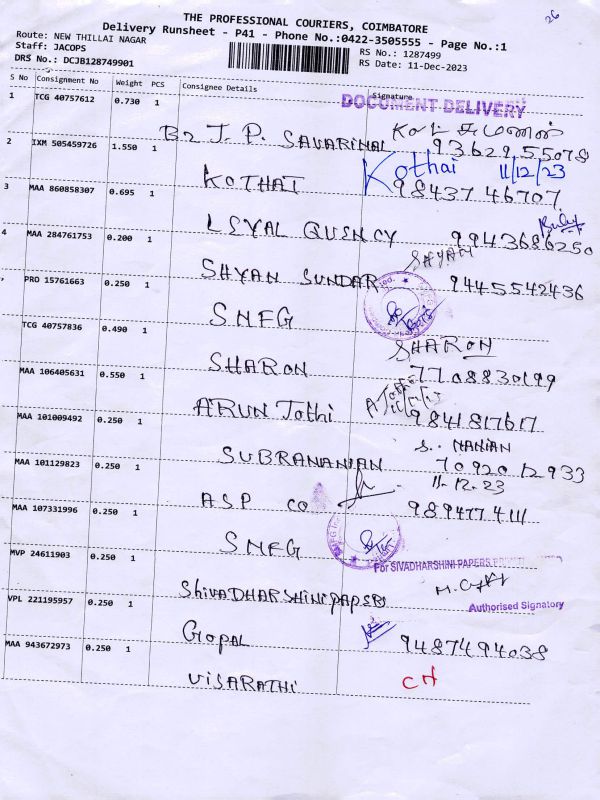 26
THE PROFESSIONAL COURIERS, COIMBATORE
Delivery Runsheet - P41 - Phone No.:0422-3505555 - Page No.:1
Route: NEW THILLAI NAGAR
Staff: JACOPS
DRS No.: DCJB128749901
RS No.: 1287499
RS Date: 11-Dec-2023
S No Consignment No Weight PCS Consignee Details Signature
DOCUMENT DELIVERY
1 TCG 40757612 0.730 1
B2 J. P. SAVARIMAL 9362955078
2 IXM 505459726 1.550 1
KOTHAI Kothai 11/12/23 98437 46707
3 MAA 860858307 0.695 1
LSYAL QUENCY 9943686250
4 MAA 284761753 0.200 1
SHYAN SUNDAR SHYAM 9445542436
PRO 15761663 0.250 1
SMFG
TCG 40757836 0.490 1
SHARON SHARON 7708830199
MAA 106405631 0.550 1
ARUN Jothi 9841817617
MAA 101009492 0.250 1
SUBRANANIAN S.. MANIAN 7092012933
MAA 101129823 0.250 1
ASP CO 11.12.23 989477 4111
MAA 107331996 0.250 1
SMFG
For SIVADHARSHINI PAPERS
MVP 24611903 0.250 1
SHIVADHARSHINIPAPSRS
Authorised Signatory
VPL 221195957 0.250 1
GOPAL 9487494038
MAA 943672973 0.250 1
VISARATHI CH